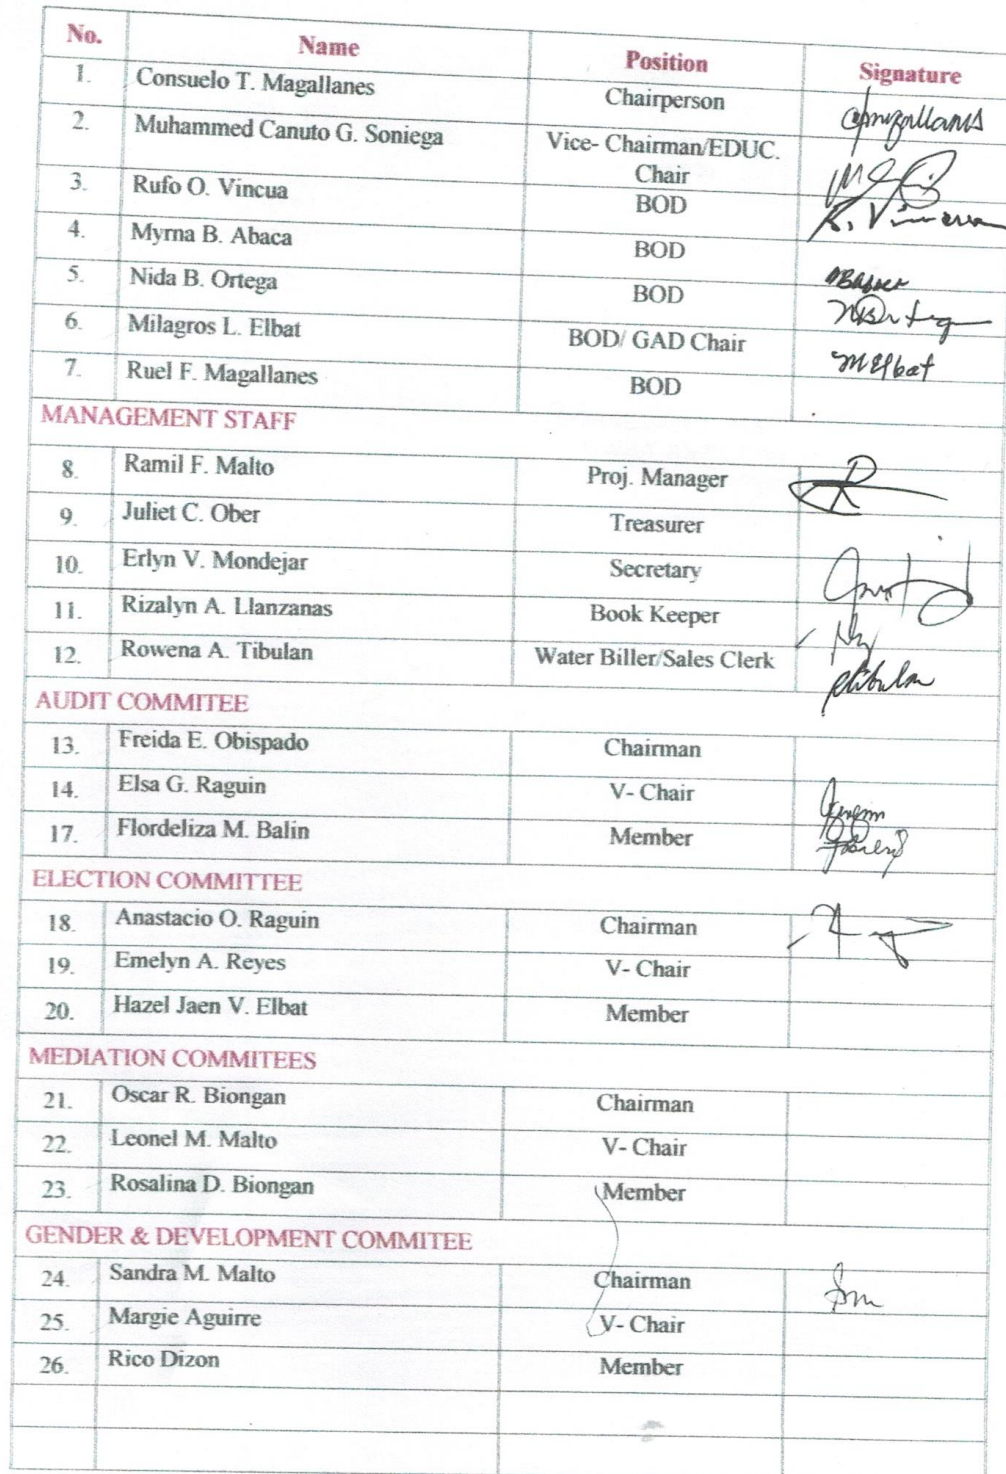 No. Name Position Signature
1. Consuelo T. Magallanes Chairperson
2. Muhammed Canuto G. Soniega Vice- Chairman/EDUC.
Chair
3. Rufo O. Vincua BOD
4. Myrna B. Abaca BOD
5. Nida B. Ortega BOD
6. Milagros L. Elbat BOD/ GAD Chair MElbat
7. Ruel F. Magallanes BOD
MANAGEMENT STAFF
8. Ramil F. Malto Proj. Manager
9. Juliet C. Ober Treasurer
10. Erlyn V. Mondejar Secretary
11. Rizalyn A. Llanzanas Book Keeper
12. Rowena A. Tibulan Water Biller/Sales Clerk
AUDIT COMMITEE
13. Freida E. Obispado Chairman
14. Elsa G. Raguin V- Chair
17. Flordeliza M. Balin Member
ELECTION COMMITTEE
18. Anastacio O. Raguin Chairman
19. Emelyn A. Reyes V- Chair
20. Hazel Jaen V. Elbat Member
MEDIATION COMMITEES
21. Oscar R. Biongan Chairman
22. Leonel M. Malto V- Chair
23. Rosalina D. Biongan Member
GENDER & DEVELOPMENT COMMITEE
24. Sandra M. Malto Chairman
25. Margie Aguirre V- Chair
26. Rico Dizon Member